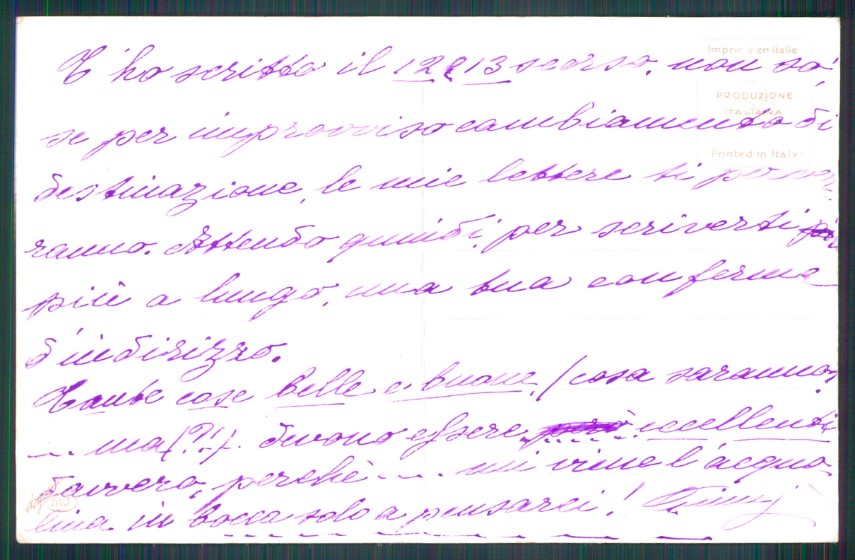 Imprimé en Italie
T'ho scritto il 12 e 13 scorso, non so,
PRODUZIONE
ITALIANA
se per improvviso cambiamento di
Printed in Italy
destinazione, le mie lettere ti perver-
ranno. Attendo quindi, per scriverti
più a lungo, una tua conferma
d'indirizzo.
Tante cose belle e buone, (cosa saranno?
... ma (?!). devono essere eccellenti
davvero, perché .... mi viene l'acquo-
lina in bocca solo a pensarci!